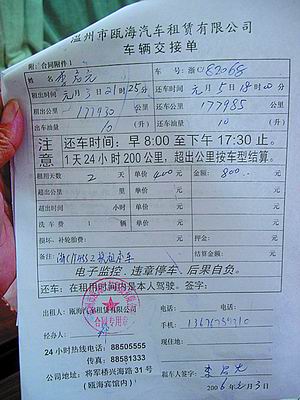 温州市瓯海汽车租赁有限公司
车辆交接单
附：合同附件1
姓名 车号：浙C/82068
租出时间 元月3日21时25分 还车时间 元月5日18时00分
租出公里 177430 公里 还车公里 177985 公里
出车油量 10 (升) 还车油量 10 (升)
注意
还车时间：早8:00至下午17:30止。
1天24小时200公里，超出公里按车型结算。
租用天数 2 天 单价 400 元 金额： 800 元
超出公里 里 单价 元 元
超出时间 小时 单价 元 元
洗车费 1 辆 单价 元 元
损坏、补轮胎费： 元 押金： 元
备注： 结算金额： 元
电子监控、违章停车、后果自负。
还车：在租用时间内是本人驾驶。签字：
出租人：瓯海汽车租赁有限公司 电话：
合同专用章
手机：
经办人：
现住地：
24小时热线电话：88505555
传真：88581333
公司地址：将军桥兴海路31号
(瓯海宾馆内)
租车人签字：
2006年元月3日